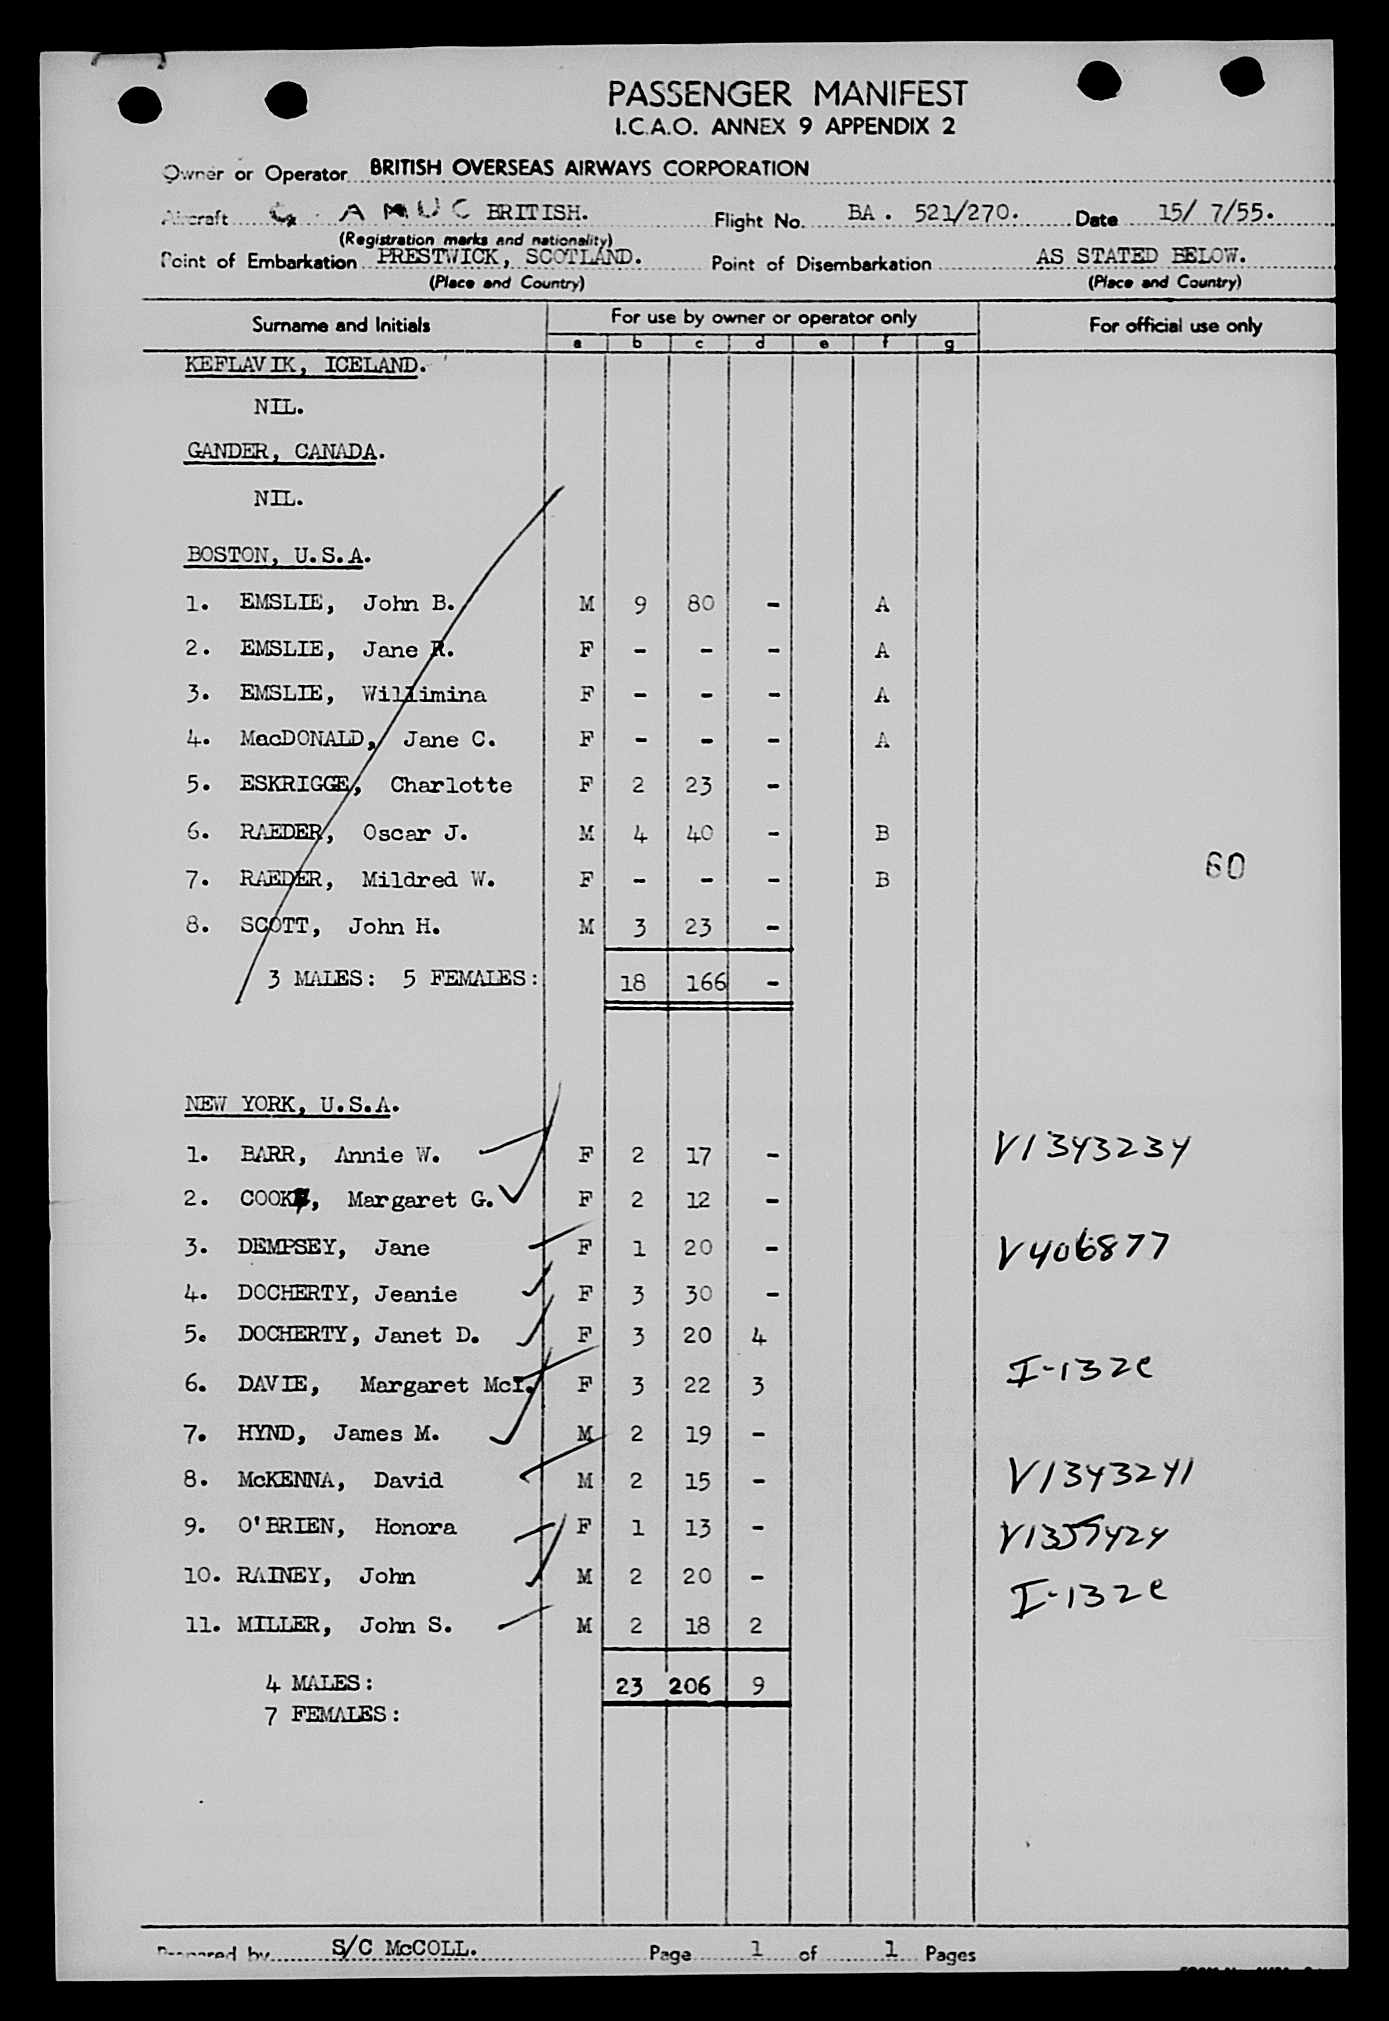 PASSENGER MANIFEST
I.C.A.O. ANNEX 9 APPENDIX 2
Owner or Operator BRITISH OVERSEAS AIRWAYS CORPORATION
Aircraft G. AMUC BRITISH. Flight No. BA. 521/270. Date 15/ 7/55.
(Registration marks and nationality)
Point of Embarkation PRESTWICK, SCOTLAND. Point of Disembarkation AS STATED BELOW.
(Place and Country) (Place and Country)
Surname and Initials For use by owner or operator only For official use only
a b c d e f g
KEFLAVIK, ICELAND.
NIL.
GANDER, CANADA.
NIL.
BOSTON, U.S.A.
1. EMSLIE, John B. M 9 80 - A
2. EMSLIE, Jane R. F - - - A
3. EMSLIE, Willimina F - - - A
4. MacDONALD, Jane C. F - - - A
5. ESKRIGGE, Charlotte F 2 23 -
6. RAEDER, Oscar J. M 4 40 - B
60
7. RAEDER, Mildred W. F - - - B
8. SCOTT, John H. M 3 23 -
3 MALES: 5 FEMALES: 18 166 -
NEW YORK, U.S.A.
1. BARR, Annie W. F 2 17 - V1343234
2. COOK, Margaret G. F 2 12 -
3. DEMPSEY, Jane F 1 20 - V406877
4. DOCHERTY, Jeanie F 3 30 -
5. DOCHERTY, Janet D. F 3 20 4
6. DAVIE, Margaret McI. F 3 22 3 I-132e
7. HYND, James M. M 2 19 -
8. McKENNA, David M 2 15 - V1343241
9. O'BRIEN, Honora F 1 13 - V1355424
10. RAINEY, John M 2 20 -
11. MILLER, John S. M 2 18 2 I-132e
4 MALES: 23 206 9
7 FEMALES:
Prepared by S/C McCOLL. Page 1 of 1 Pages